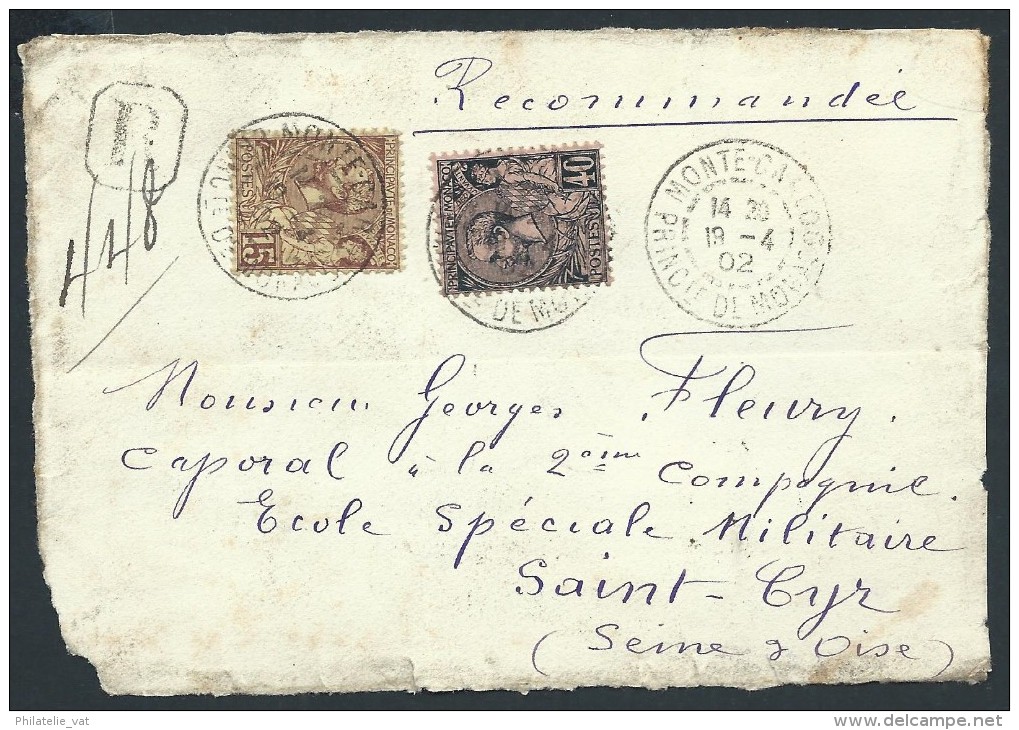 Recommandée
R
448
PRINCIPAUTÉ DE MONACO
POSTES
15
PRINCIPAUTÉ DE MONACO
POSTES
40
DE MON
MONTE-CARLO
14 30
18 -4
02
PRINCTÉ DE MONACO
Monsieur Georges Fleury.
Caporal à la 2ème Compagnie.
Ecole Spéciale Militaire
Saint-Cyr
(Seine & Oise)
Philatelie_vat
delcampe.net